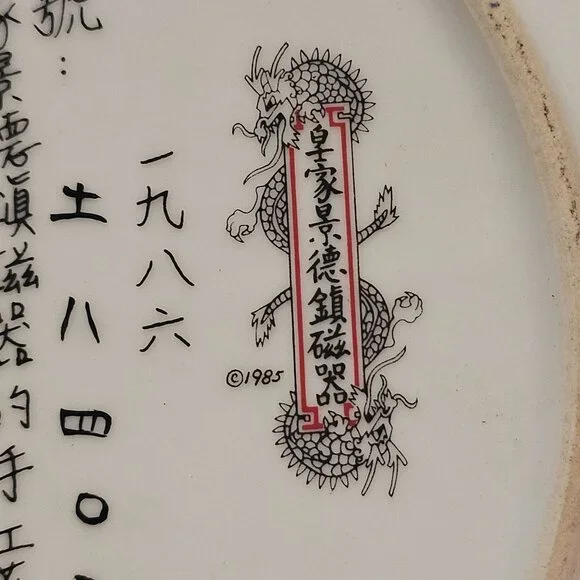 皇家景德鎮磁器
©1985
一九八六
號：
土八四〇
景德鎮磁器的手工